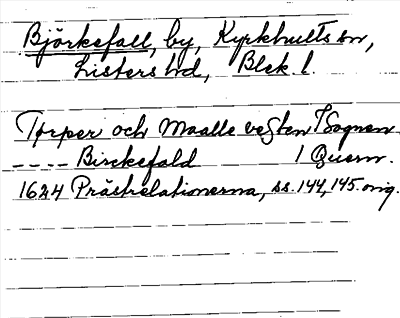 Björkefall, by, Kyrkhults sn,
Listers hd, Blek. l.
Torper och Maalle vesten I Sognen
---- Birckefald 1 Quern.
1624 Prästrelationerna, ss. 144, 145. orig.